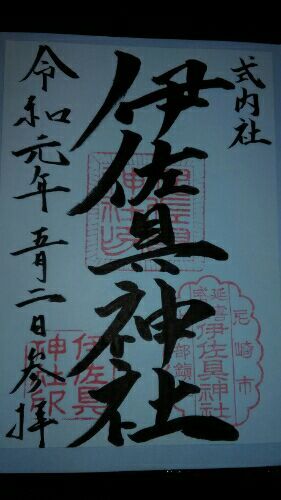 式内社
伊佐具神社
令和元年五月二日参拝
尼崎市
延喜式
伊佐具神社
伊佐具
神社印